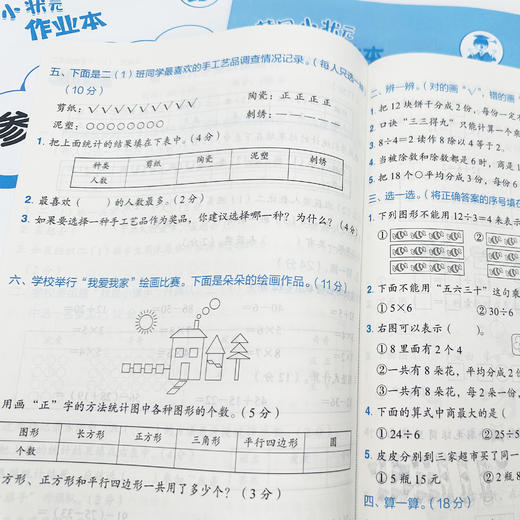 小状元
作业本
小状元
作业本
参
五、下面是二(1)班同学最喜欢的手工艺品调查情况记录。(每人只选一种)
(10分)
剪纸:√√√√√√√√√ 陶瓷:正正正正
泥塑:○○○○○○○○ 刺绣:
1. 把上面统计的结果填在下表中。(4分)
种类 剪纸 陶瓷 泥塑 刺绣
人数
2. 最喜欢( )的人数最多。(2分)
3. 如果要选择一种手工艺品作为奖品,你建议选择哪一种?为什么?(4分)
六、学校举行“我爱我家”绘画比赛。下面是朵朵的绘画作品。(11分)
用画“正”字的方法统计图中各种图形的个数。(5分)
图形 长方形 正方形 三角形 平行四边形 圆
个数
方形、正方形和平行四边形一共用了多少个?(3分)
二、辨一辨。(对的画“√”,错的画“
1. 把12块饼干分成2份,每份一定
2. 口诀“三三得九”只能计算一个乘
3. 8÷4=2读作8除以4等于2。
4. 当被除数和除数都是6时,商是1
5. 把18个○平均分成3份,每份
三、选一选。(将正确答案的序号填在
1. 下列图形不能用12÷3=4来表示
①
②
③
2. 下面不能用“五六三十”这句乘
①5×6 ②30÷6
3. 右图可以表示( )。
①8里面有2个4
②一共有8朵花,平均分成2份
③一共有8朵花,每2朵一份,
4. 下面的算式中商最大的是(
①24÷6 ②25÷5
5. 皮皮分别到三家超市买了同一
①5瓶15元 ②2瓶8
四、算一算。(18分)